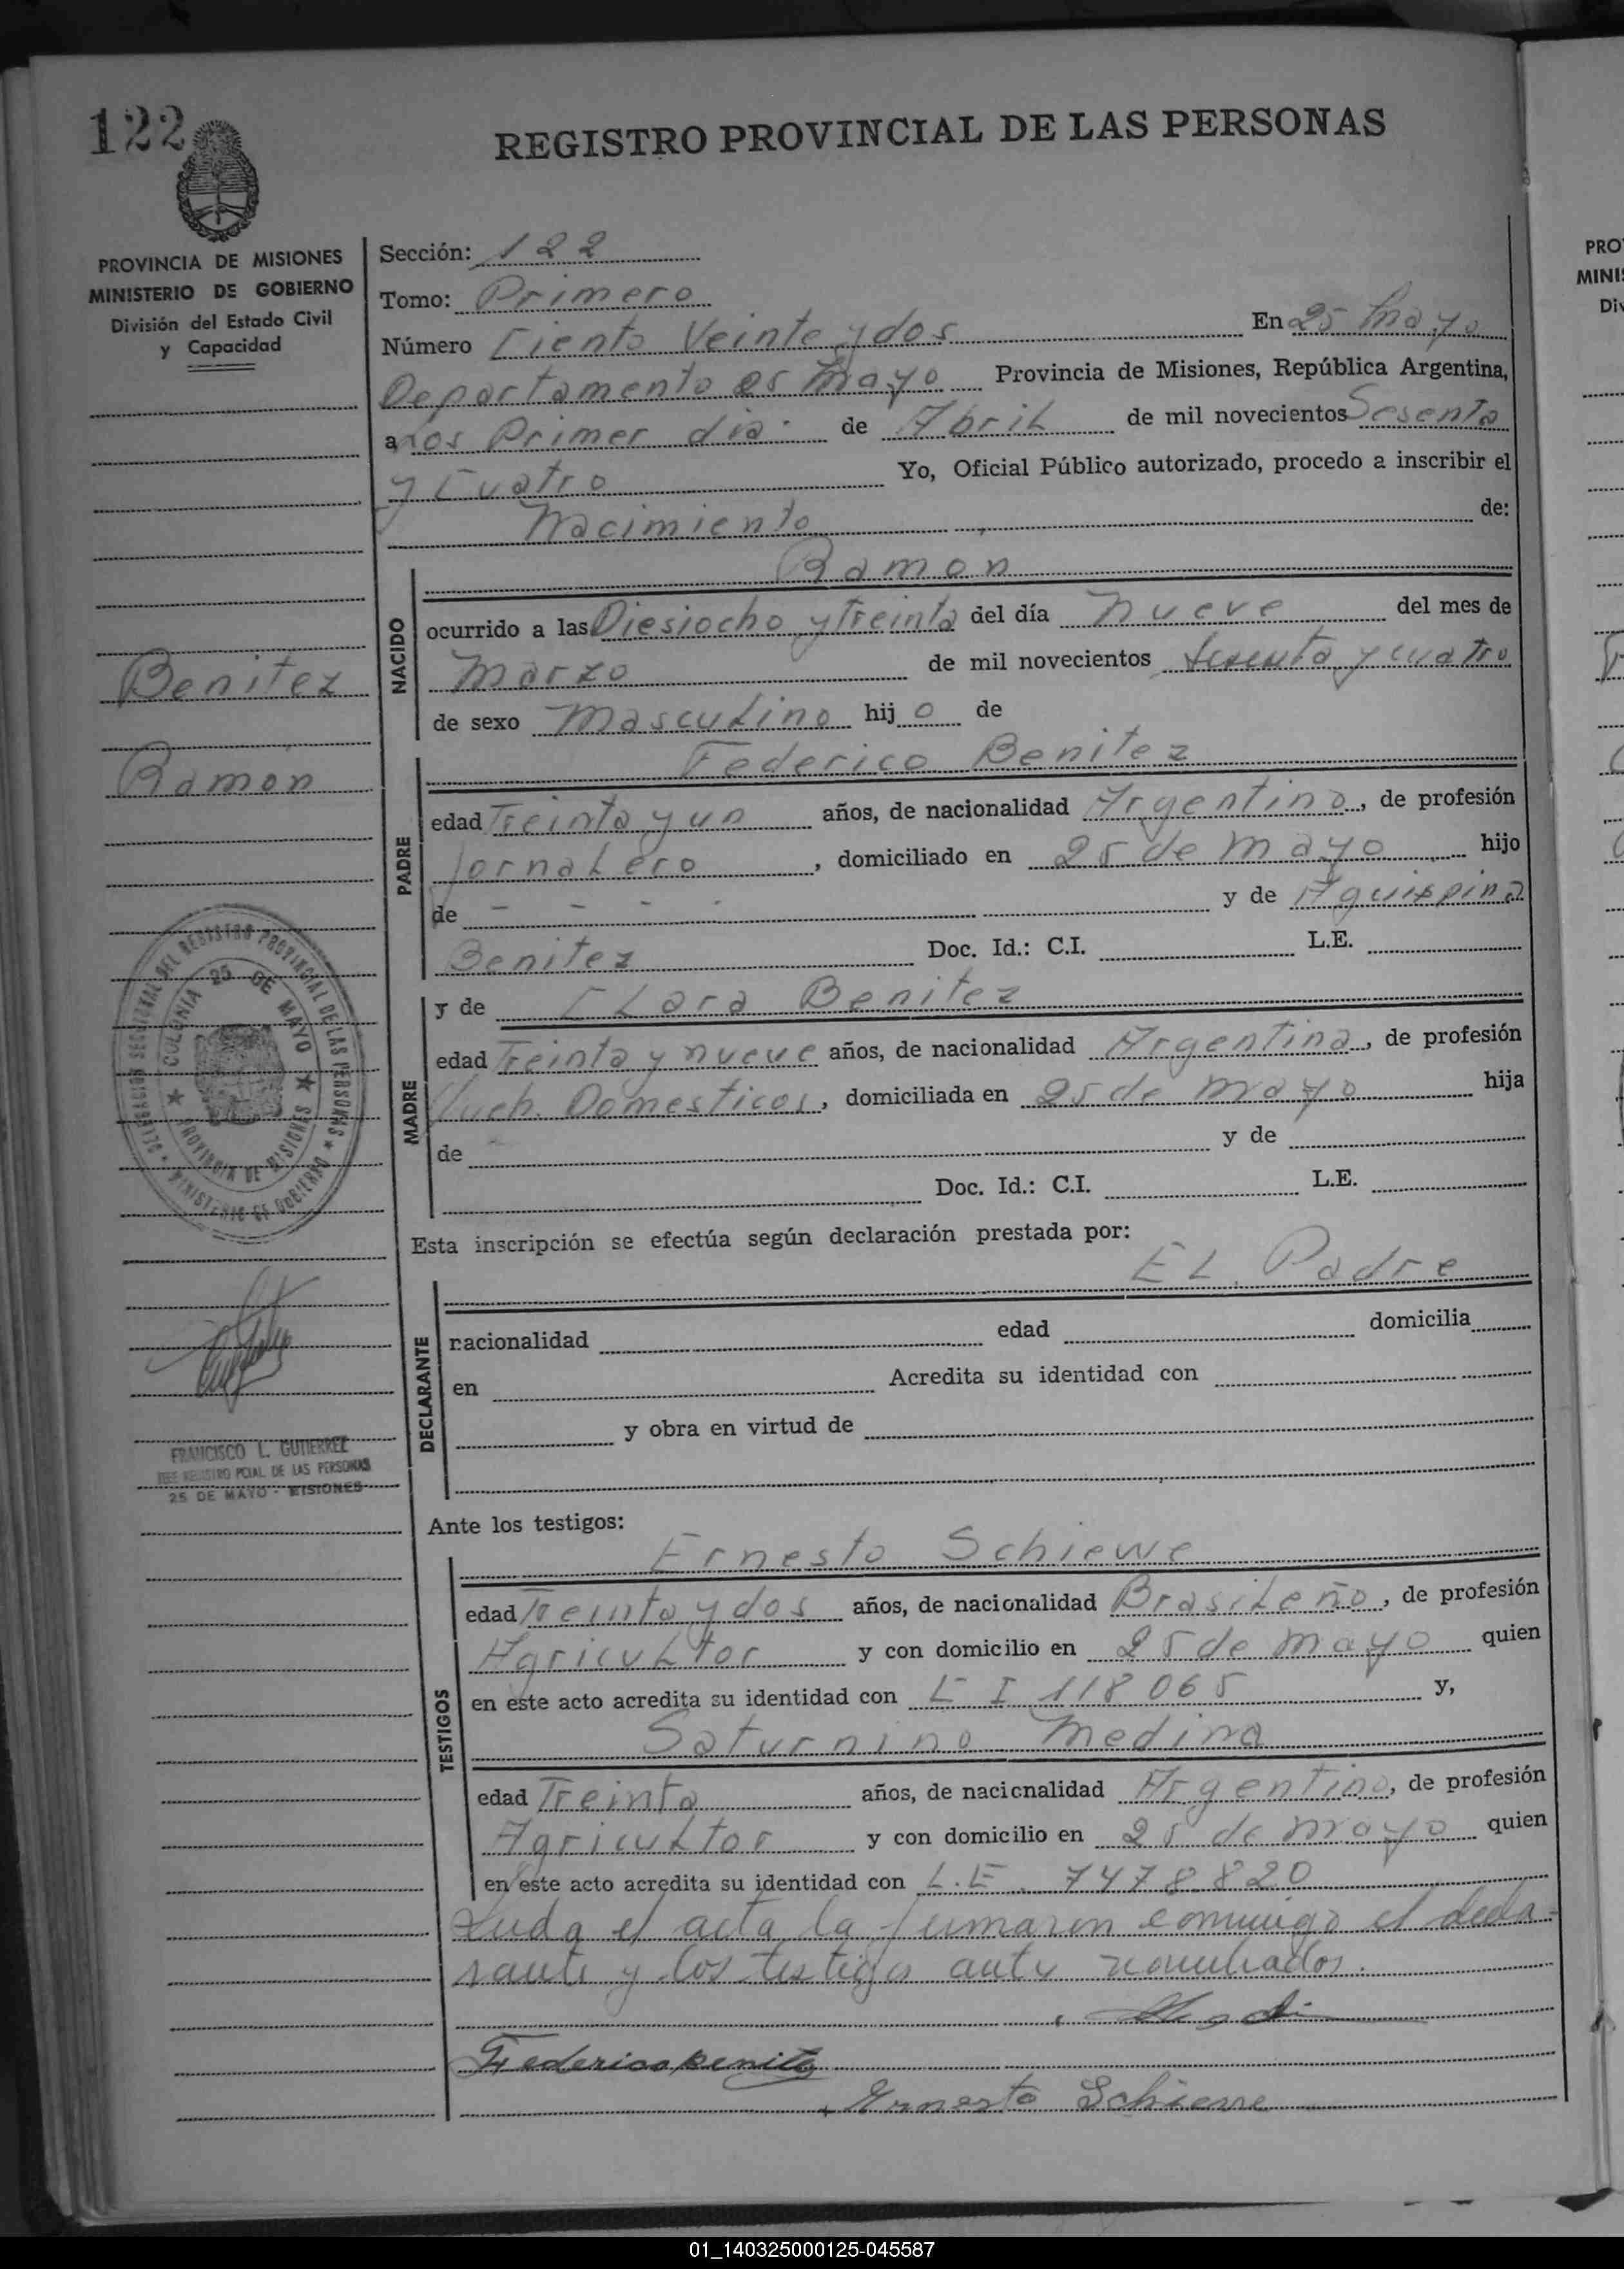 122
REGISTRO PROVINCIAL DE LAS PERSONAS
PROVINCIA DE MISIONES
MINISTERIO DE GOBIERNO
División del Estado Civil
y Capacidad
Sección: 122
Tomo: Primero
Número Ciento Veinte y dos En 25 Mayo
Departamento 25 Mayo Provincia de Misiones, República Argentina,
a Los Primer dia de Abril de mil novecientos Sesenta
y Cuatro Yo, Oficial Público autorizado, procedo a inscribir el
Nacimiento de:
Ramon
NACIDO
ocurrido a las Diesiocho y Treinta del día Nueve del mes de
Marzo de mil novecientos sesenta y cuatro
de sexo Masculino hijo de
Benitez
Ramon
Federico Benitez
PADRE
edad Treinta y un años, de nacionalidad Argentino, de profesión
Jornalero, domiciliado en 25 de Mayo hijo
de - - - - y de
Benitez Doc. Id.: C.I. L.E.
MADRE
y de Clara Benitez
edad Treinta y nueve años, de nacionalidad Argentina, de profesión
Domesticos, domiciliada en 25 de Mayo hija
de y de
Doc. Id.: C.I. L.E.
DELEGACION SECCIONAL DEL REGISTRO PROVINCIAL DE LAS PERSONAS
MINISTERIO DE GOBIERNO
COLONIA 25 DE MAYO
PROVINCIA DE MISIONES
Esta inscripción se efectúa según declaración prestada por:
El Padre
DECLARANTE
nacionalidad edad domicilia
en Acredita su identidad con
y obra en virtud de
FRANCISCO L. GUTIERREZ
JEFE REGISTRO PCIAL DE LAS PERSONAS
25 DE MAYO - MISIONES
Ante los testigos:
Ernesto Schiewe
TESTIGOS
edad Treinta y dos años, de nacionalidad Brasileño, de profesión
Agricultor y con domicilio en 25 de Mayo quien
en este acto acredita su identidad con C I 118065 y,
Saturnino Medina
edad Treinta años, de nacionalidad Argentino, de profesión
Agricultor y con domicilio en 25 de Mayo quien
en este acto acredita su identidad con L.E. 7478820
Leida el acta la firmaron conmigo el decla-
rante y los testigos antes nombrados.
Federico Benitez
Ernesto Schiewe
PRO
MINI
Div
01_140325000125-045587